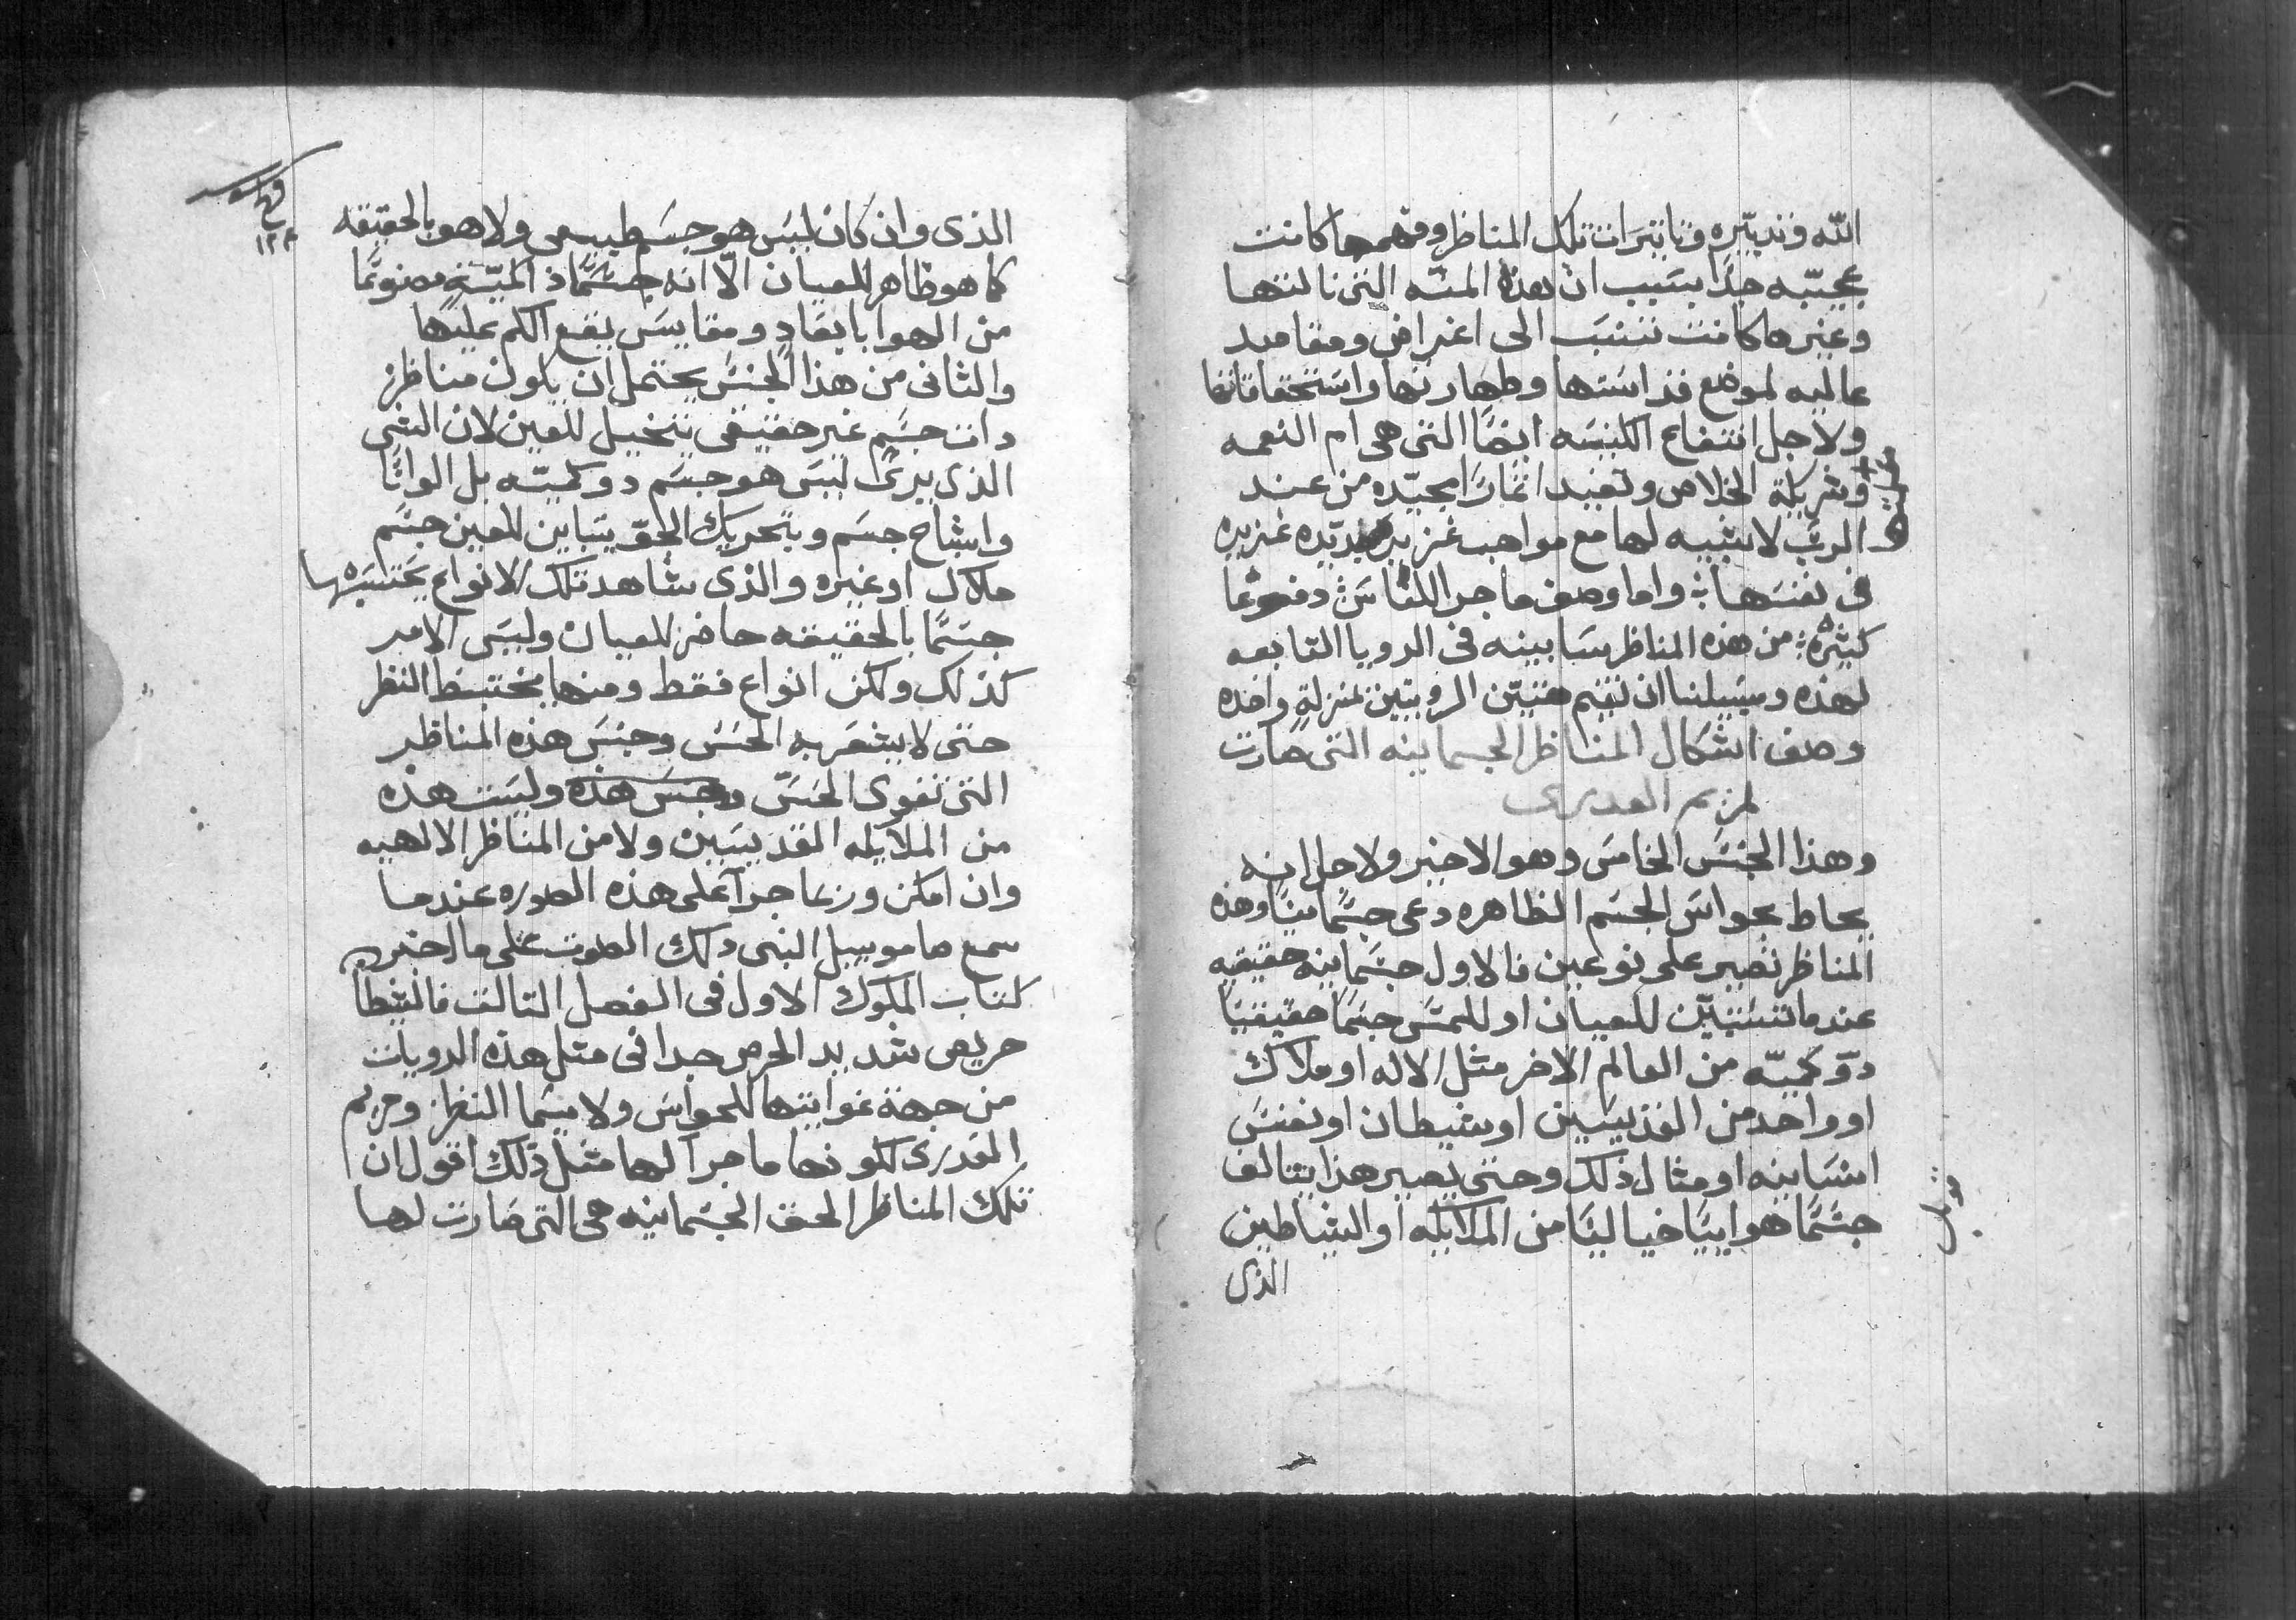 الله وتدبيره وتاثيرات تلك المناظر وفهمها كانت
عجيبه جدًا بسبب ان هذه المنه التى نالتها
وغيرها كانت تنسَب الى اغراض ومقاصد
عاليه لموضع قداستها وطهارتها واستحقاقاتها
ولاجل انتفاع الكنيسَه ايضًا التى هى ام النعمه
وشريكة الخلاص وتفيد اثمارًا مجيّده من عند
الربّ لا شبيه لها مع مواهب غزيره
فى نفسَها ؛ واما وصف ما جرا للقاسَ دفوعًا
كثيره ؛ من هذه المناظر سَابينه فى الرويا التابعه
لهذه وسَبيلنا ان نقيم هتين الرويتين بمنزلةٍ واحده
وصف اشكال المناظر الجسمانيه التى صارت
لمريم العدرى
وهذا الجنسَ الخامسَ وهو الاخير ولاجل انه
يحاط بحواسَ الجسَم الظاهره دعى جسَمانيًا وهذه
المناظر تصير على نوعين فالاول جسَمانيه حقيقيه
عندما تستبيّن للعيان او للمسَ جسَمًا حقيقيًا
دو كميّه من العالم الاخر مثل الاله او ملاك
او واحد من القديسَين او شيطان او نفسَ
انسَانيه او مثال ذلك وحتى يصير هذا يتالف
جسَمًا هواييًا خياليًا من الملايكه او الشياطين
الذى
قوبل
١٢٤
الذى وان كان ليسَ هو جسَم طبيعى ولا هو بالحقيقه
كما هو ظاهر للعيان الّا انه جسَمًا ذا كميّةٍ مصنوعًا
من الهوا بابعادٍ ومقاييسَ يقع الكم عليها
والثانى من هذا الجنسَ يحتمل ان يكون مناظرٌ
دات جسَم غير حقيقى يتخيل للعين لان الشى
الذى يرى ليسَ هو جسَم دو كميّه بل الوانًا
واشباح جسَم وبتحريك الجوّ يتباين للعين جسَم
ملاك او غيره والذى شاهد تلك الانواع يحتسَبها
جسَمًا بالحقيقه حاضر للعيان وليسَ الامر
كذلك ولكن انواع فقط ومنها يختبط النظر
حتى لا يشعر به الحسَ وجنسَ هذه المناظر
التى تغوى الحسَّ وجنسَ هذه وليسَت هذه
من الملايكه القديسَين ولا من المناظر الالهيه
وان امكن وربما جرا على هذه الصوره عندما
سمع صاموييل النبى دلك الصوت على ما اخبر
كتاب الملوك الاول فى الفصل التالت فالشيطان
حريص شديد الحرص جدا فى متل هذه الرويات
من جهة غوايتها للحواسَ ولا سيَما النظر ومريم
العدرى لكونها ما جرا لها مثل ذلك اقول ان
تلك المناظر الحق الجسَمانيه هى التى صارت لها